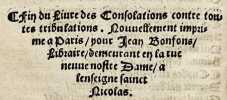 Fin du Liure des Consolations contre tou-
tes tribulations. Nouuellement impri-
me a Paris, pour Jean Bonfons,
Libraire, demeurant en la rue
neuue nostre Dame, a
lenseigne sainct
Nicolas.